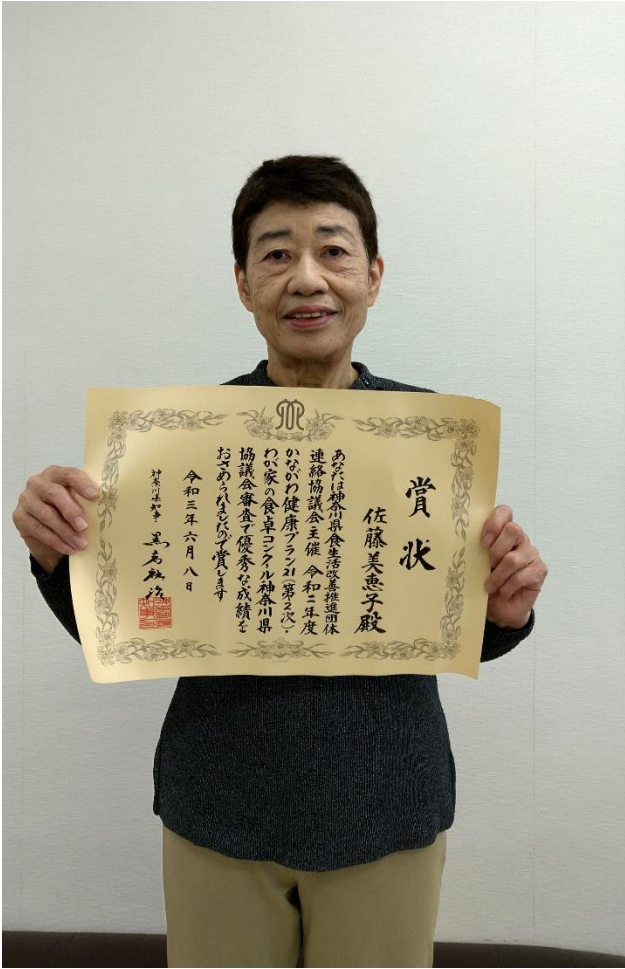 賞状
佐藤美恵子殿
あなたは神奈川県食生活改善推進団体
連絡協議会主催 令和二年度
かながわ健康プラン21(第2次)・
わが家の食卓コンクール神奈川県
協議会審査で優秀な成績を
おさめられましたので賞します
令和三年六月八日
神奈川県知事 黒岩祐治